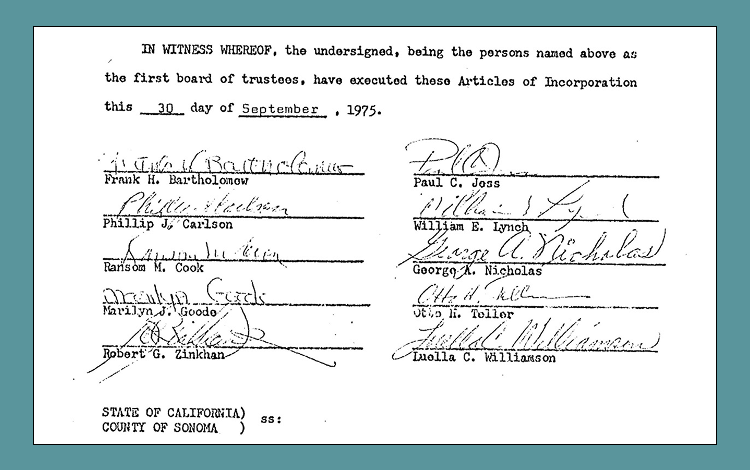 IN WITNESS WHEREOF, the undersigned, being the persons named above as
the first board of trustees, have executed these Articles of Incorporation
this 30 day of September, 1975.
Frank H. Bartholomew
Frank H. Bartholomew
Phillip J. Carlson
Ransom M. Cook
Ransom M. Cook
Marilyn Goode
Marilyn J. Goode
Robert G. Zinkhan
Paul C. Joss
William E. Lynch
George A. Nicholas
George A. Nicholas
Otto H. Teller
Luella C. Williamson
Luella C. Williamson
STATE OF CALIFORNIA)
COUNTY OF SONOMA ) ss: